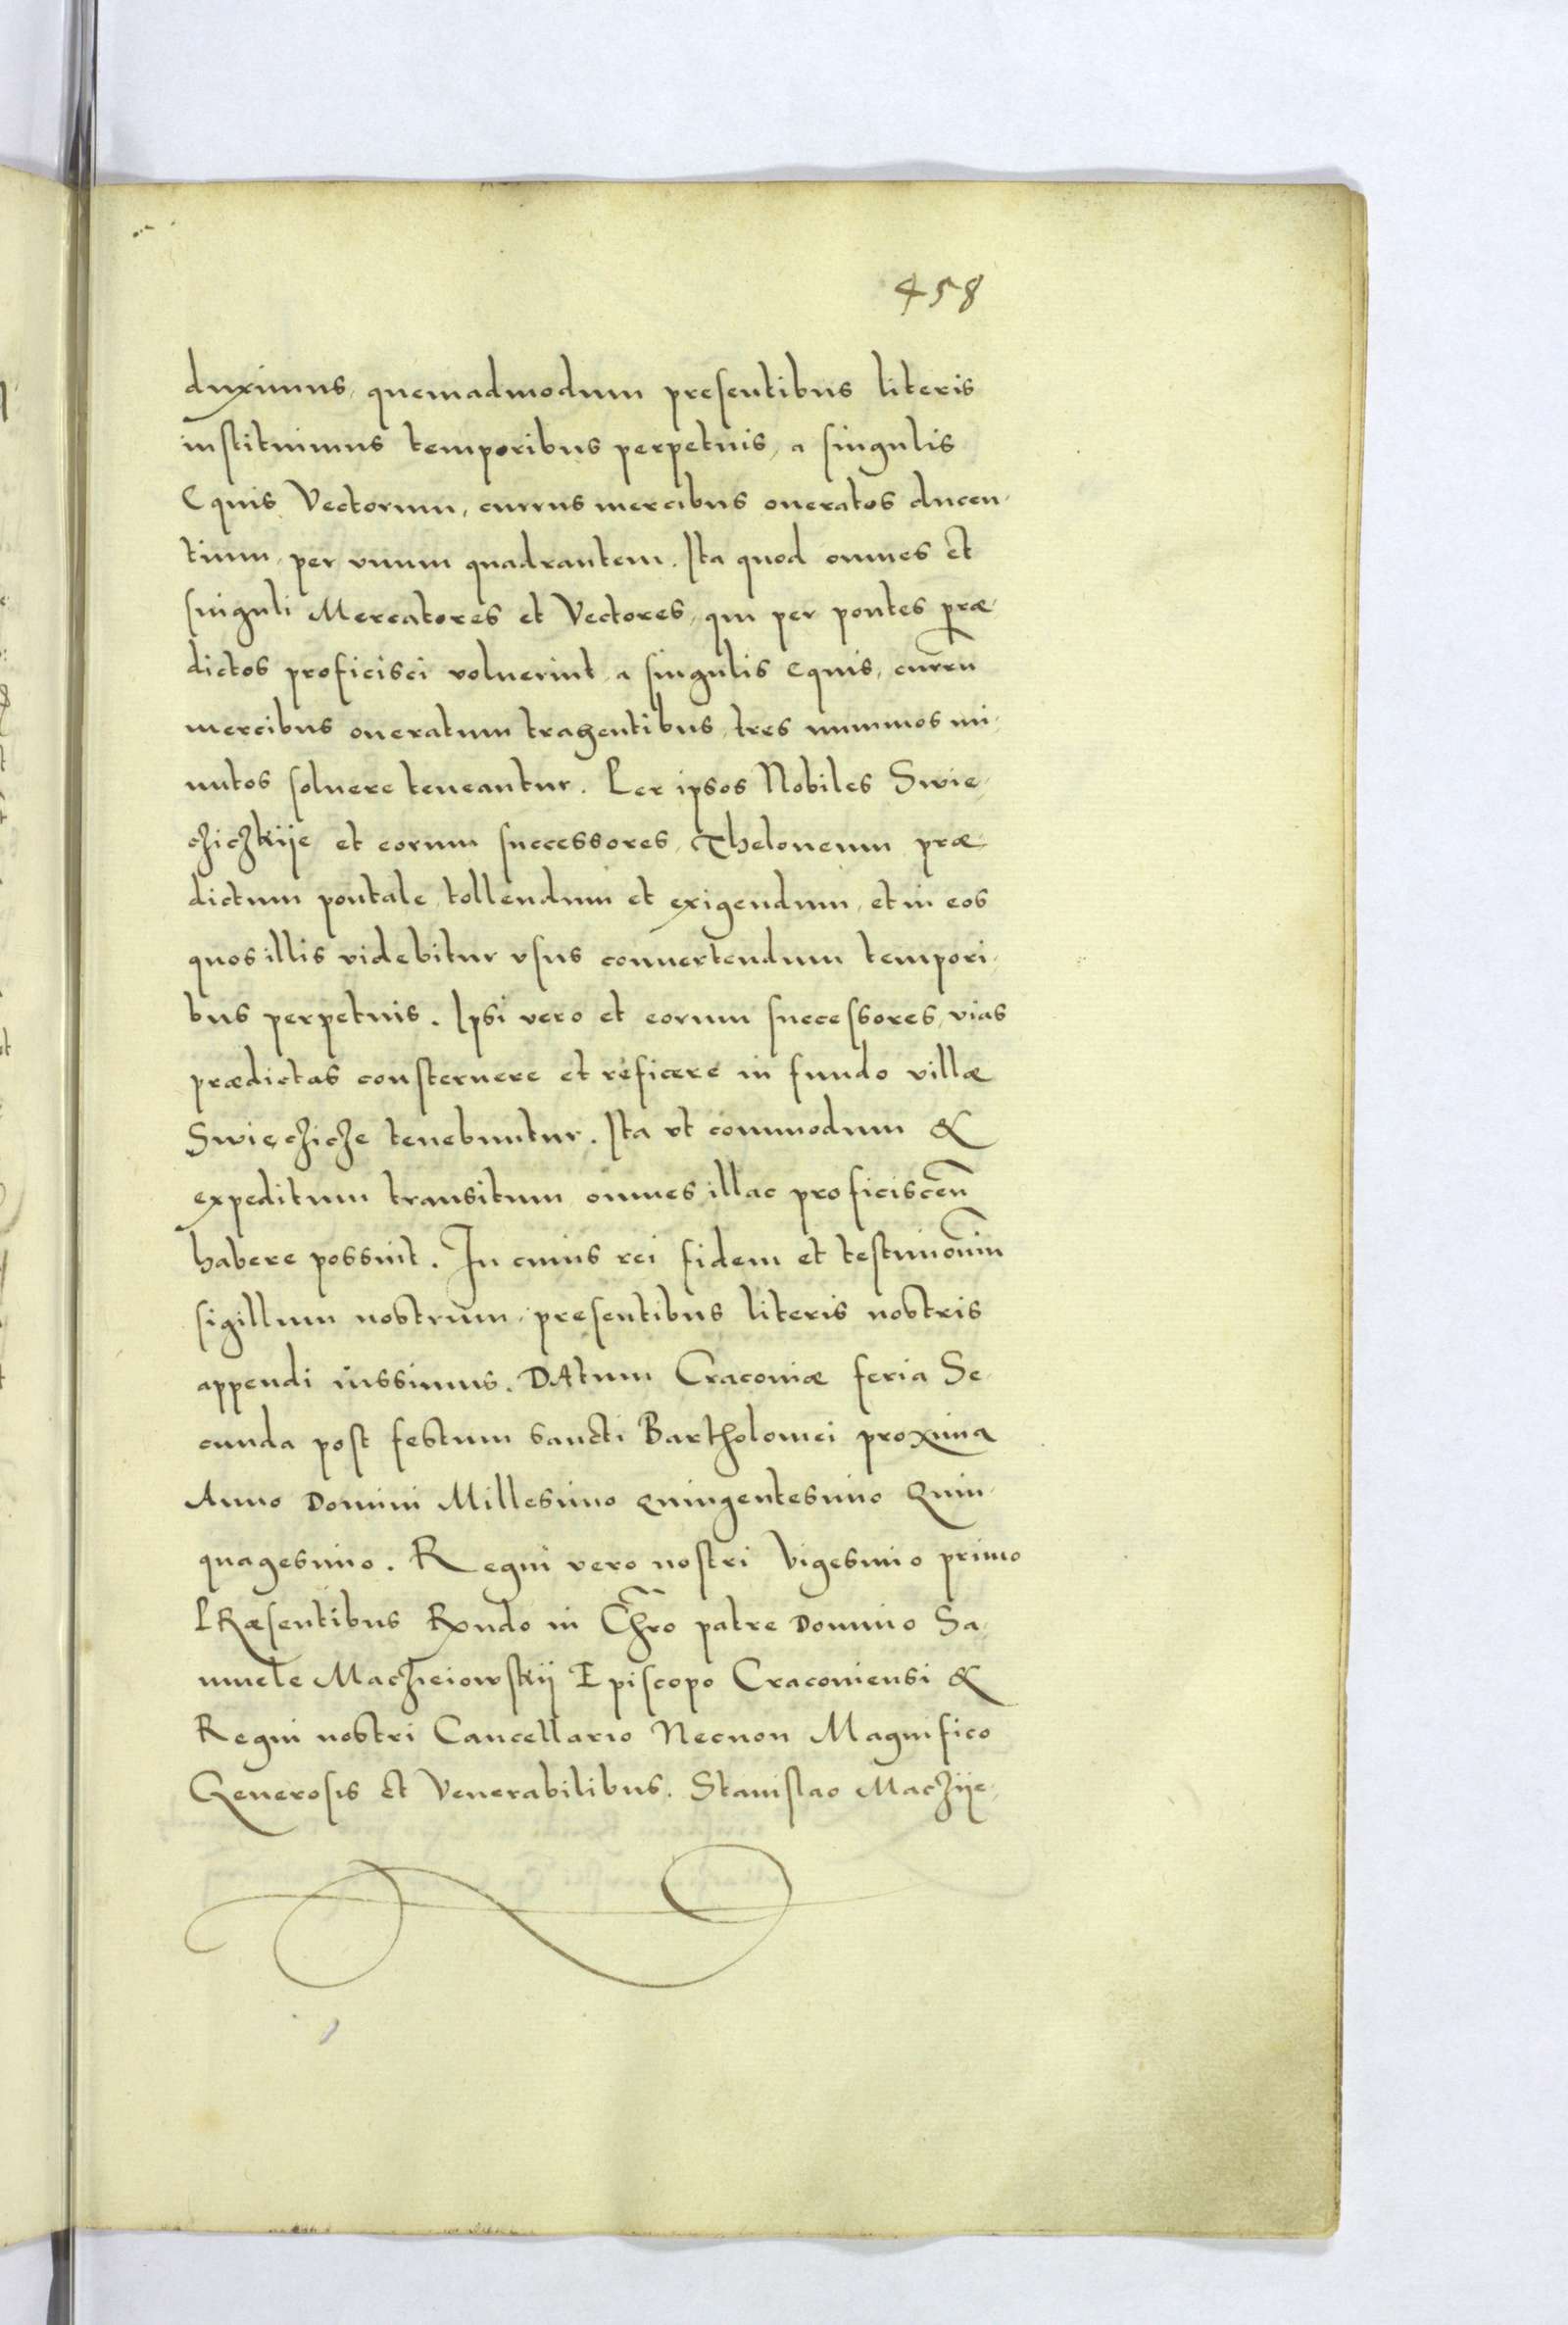 458
duximus, quemadmodum presentibus literis
instituimus temporibus perpetuis, a singulis
Equis Vectorum, currus mercibus oneratos ducen-
tium, per vnum quadrantem. Ita quod omnes et
singuli Mercatores et Vectores, qui per pontes præ-
dictos proficisci voluerint, a singulis Equis, curru
mercibus oneratum trahentibus, tres nummos mi-
nutos soluere teneantur. Per ipsos Nobiles Swie-
cziczkije et eorum successores, Theloneum præ-
dictum pontale, tollendum et exigendum, et in eos
quos illis videbitur vsus conuertendum tempori-
bus perpetuis. Ipsi vero et eorum successores, vias
prædictas consternere et reficere in fundo villæ
Swięczicze tenebuntur. Ita vt commodum &
expeditum transitum omnes illac proficiscen̄
habere possint. In cuius rei fidem et testimoniū
sigillum nostrum, presentibus literis nostris
appendi iussimus. DAtum Cracouiæ feria Se-
cunda post festum sancti Bartholomei proxima
Anno Domini Millesimo quingentesimo Quin-
quagesimo. Regni vero nostri Vigesimo primo
PRæsentibus Rndo in Chro patre Domino Sa-
muele Maczieiowskij Episcopo Cracouiensi &
Regni nostri Cancellario Necnon Magnifico
Generosis et Venerabilibus. Stanislao Maczije-